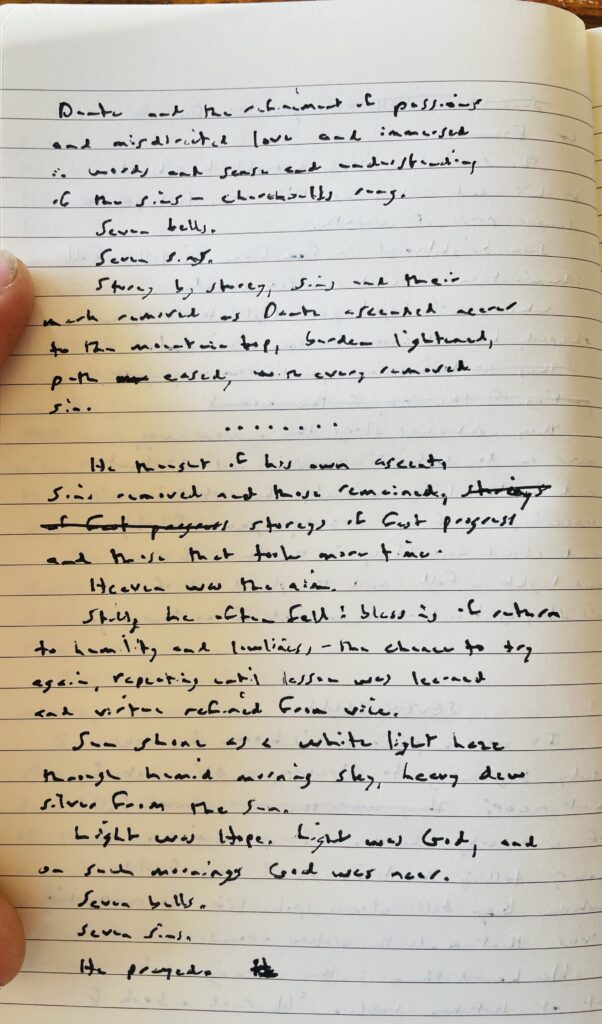 Dante and the refinement of passions
and misdirected love and immersed
in words and sense and understanding
of the sins – churchbells rang.
Seven bells.
Seven sins.
Storey by storey, sins and their
mark removed as Dante ascended nearer
to the mountain top, burden lightened,
path eased, with every removed
sin.
........
He thought of his own ascent,
sins removed and those remained, storeys
of fast progress storeys of fast progress
and those that took more time.
Heaven was the aim.
Still, he often fell: blessing of return
to humility and lowliness, – the chance to try
again, repeating until lesson was learned
and virtue refined from vice.
Sun shone as a white light haze
through humid morning sky, heavy dew
silver from the sun.
Light was Hope. Light was God, and
on such mornings God was near.
Seven bells.
Seven sins.
He prayed. He